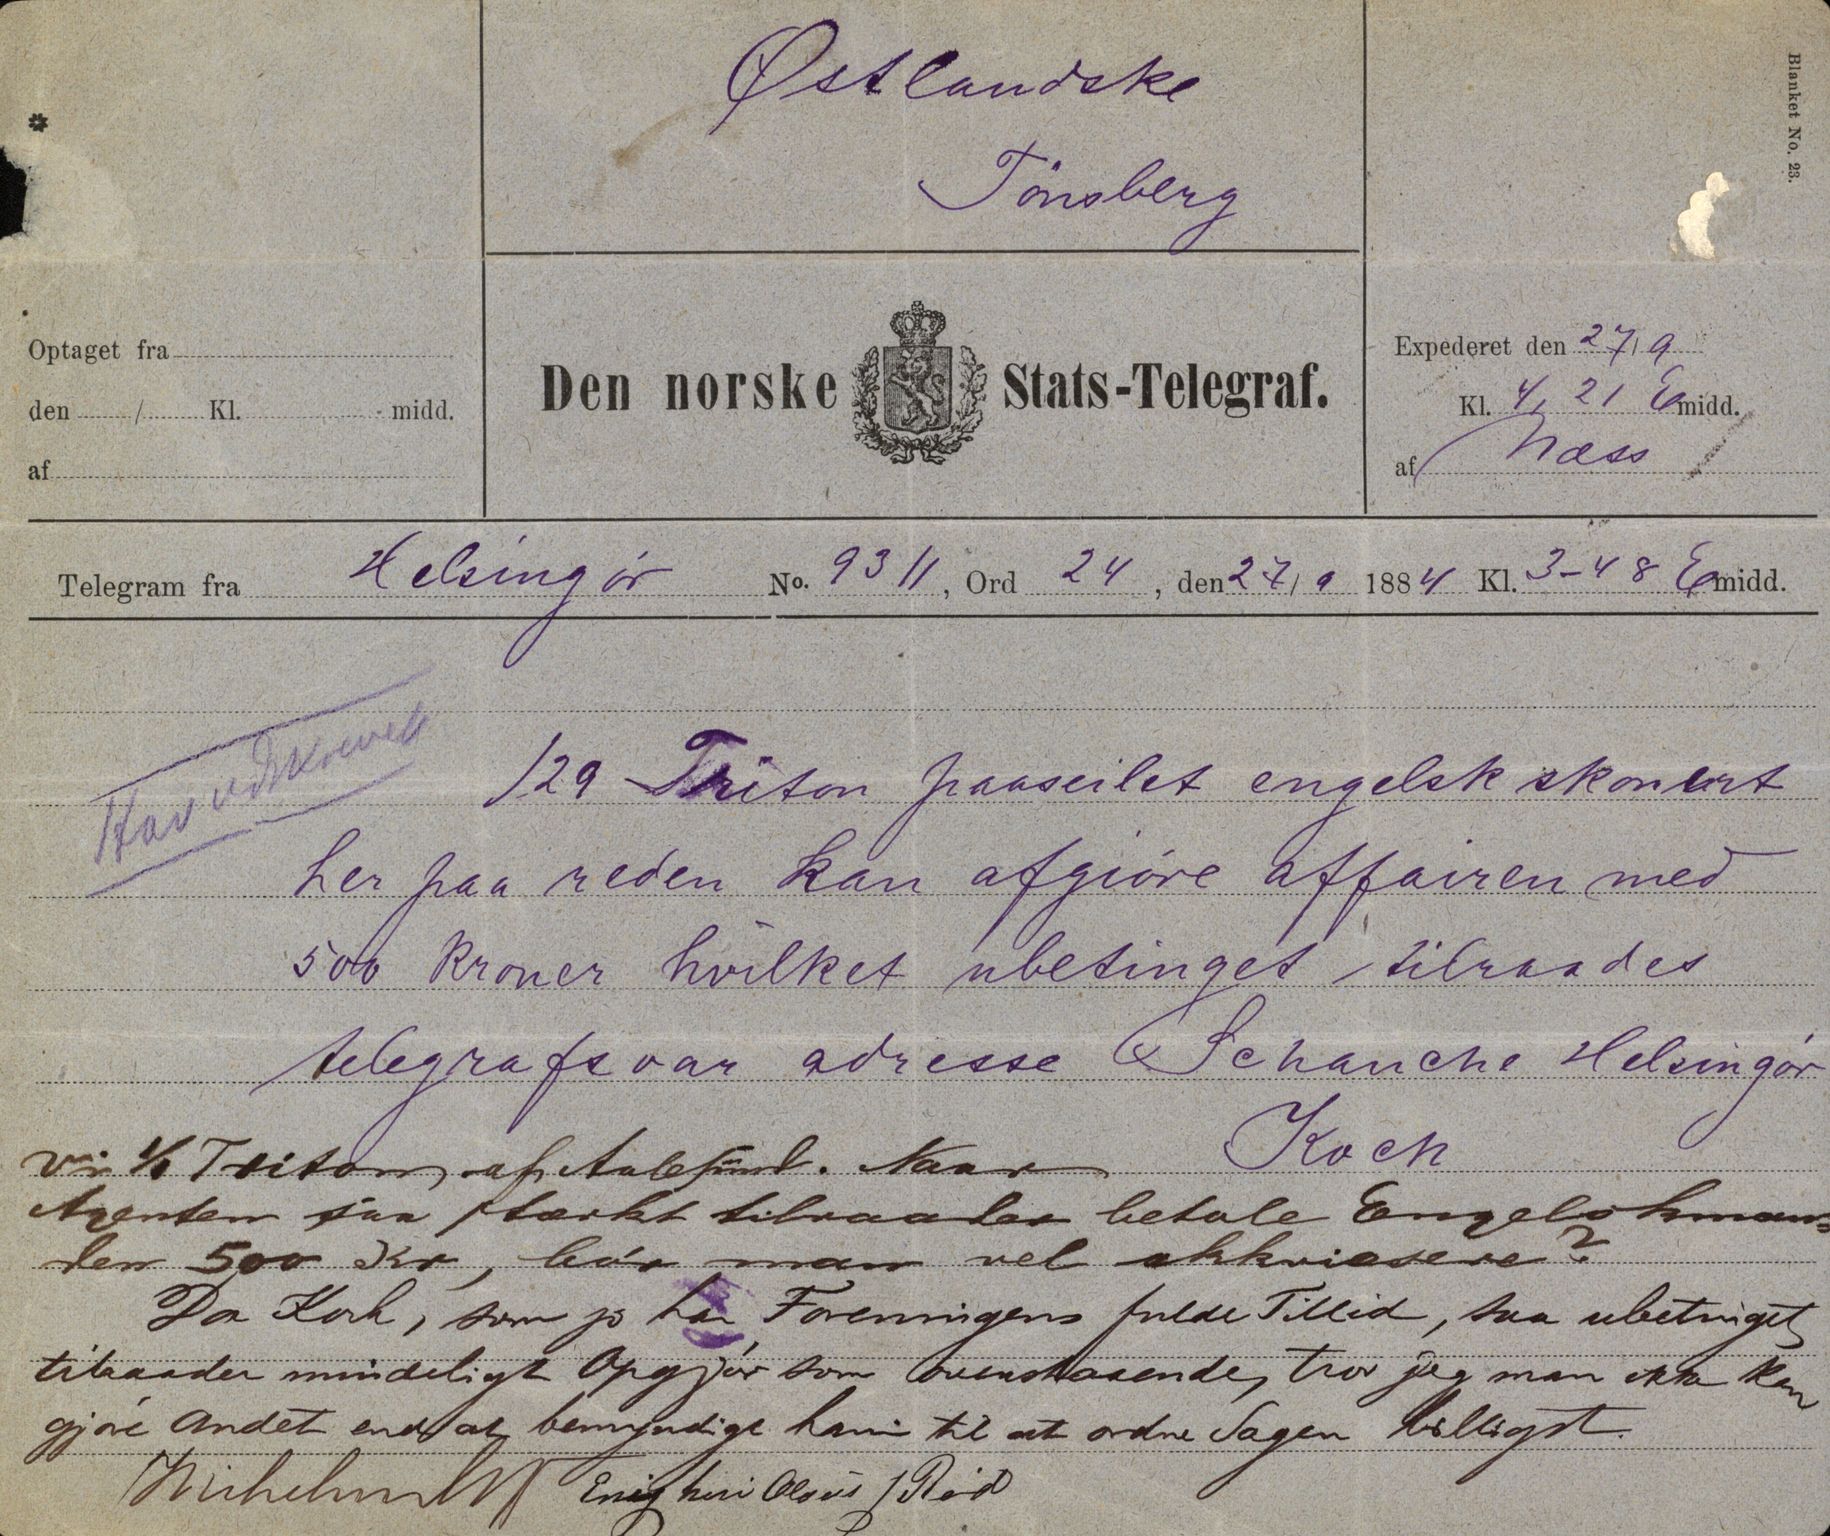 Østlandske
Tönsberg
Blanket No. 23.
*
Optaget fra
den / Kl. midd.
af
Den norske Stats-Telegraf.
Expederet den 27/9
Kl. 4,21 Emidd.
af Næss
Telegram fra Helsingór No. 9311, Ord 24, den 27/9 1884 Kl. 3-48 Emidd.
129 Triton paaseilet engelsk skonnert
her paa reden kan afgióre affairen med
500 kroner hvilket ubetinget tilraades
telegrafsvar adresse Schanche Helsingór
Koch
Vor 1/1 Triton, af Aalesund. Naar
Agenten saa stærkt tilraader betale Engelskmann
den 500 Kr, bór man vel akkviesere?
Da Koch, som jo har Foreningens fulde Tillid, saa ubetinget
tilraader mindeligt Opgjór som ovenstaaende, tror jeg man ikke kan
gjóre andet end at bemyndige ham til at ordne Sagen billigst.
Enig heri